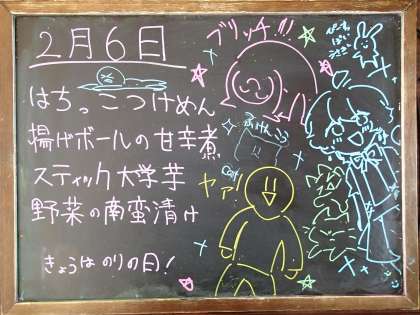 2月6日
はちっこつけめん
揚げボールの甘辛煮
スティック大学芋
野菜の南蛮漬け
きょうはのりの日!
ブリッヂ!!!
ヤァ!